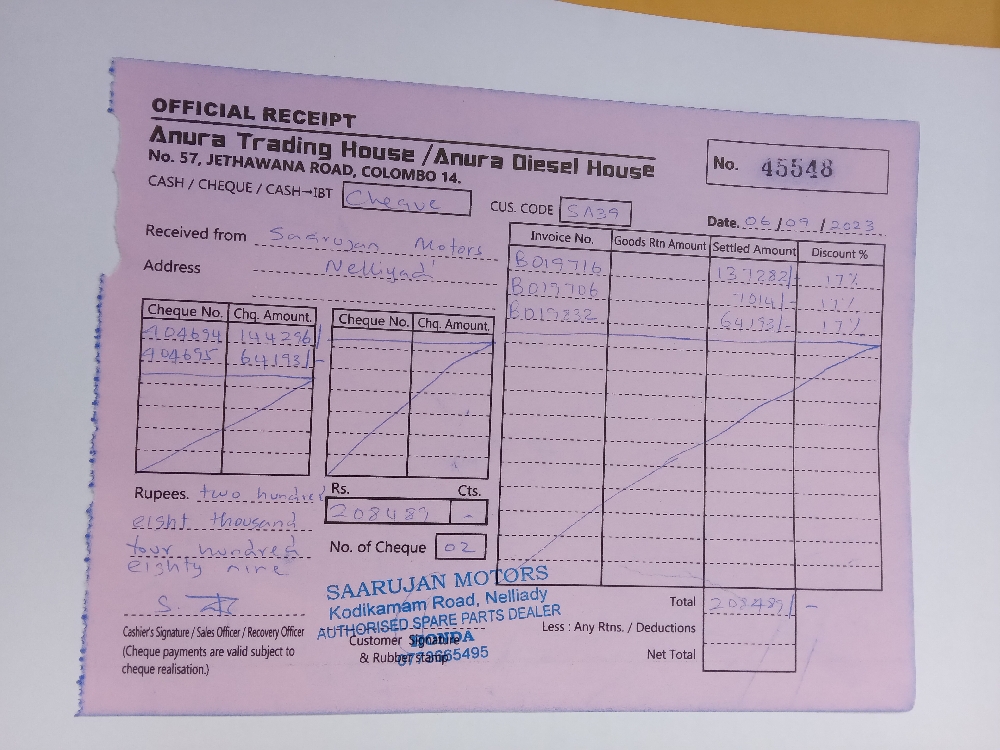 OFFICIAL RECEIPT
Anura Trading House / Anura Diesel House
No. 57, JETHAWANA ROAD, COLOMBO 14.
No. 45548
CASH / CHEQUE / CASH→IBT Cheque
CUS. CODE SA39
Date. 06/09/2023
Received from Saarujan Motors
Address Nelliyad
Invoice No. Goods Rtn Amount Settled Amount Discount %
B019716 137282/- 17%
B019706 7014/- 17%
B019832 64193/- 17%
Cheque No. Chq. Amount. Cheque No. Chq. Amount.
404694 144296/-
404695 64193/-
Rupees. two hundred
eight thousand
four hundred
eighty nine
Rs. Cts.
208489 -
No. of Cheque 02
Total 208489/-
Less : Any Rtns. / Deductions
Net Total
S.
Cashier's Signature / Sales Officer / Recovery Officer
(Cheque payments are valid subject to
cheque realisation.)
SAARUJAN MOTORS
Kodikamam Road, Nelliady
AUTHORISED SPARE PARTS DEALER
HONDA
Customer Signature
& Rubber stamp